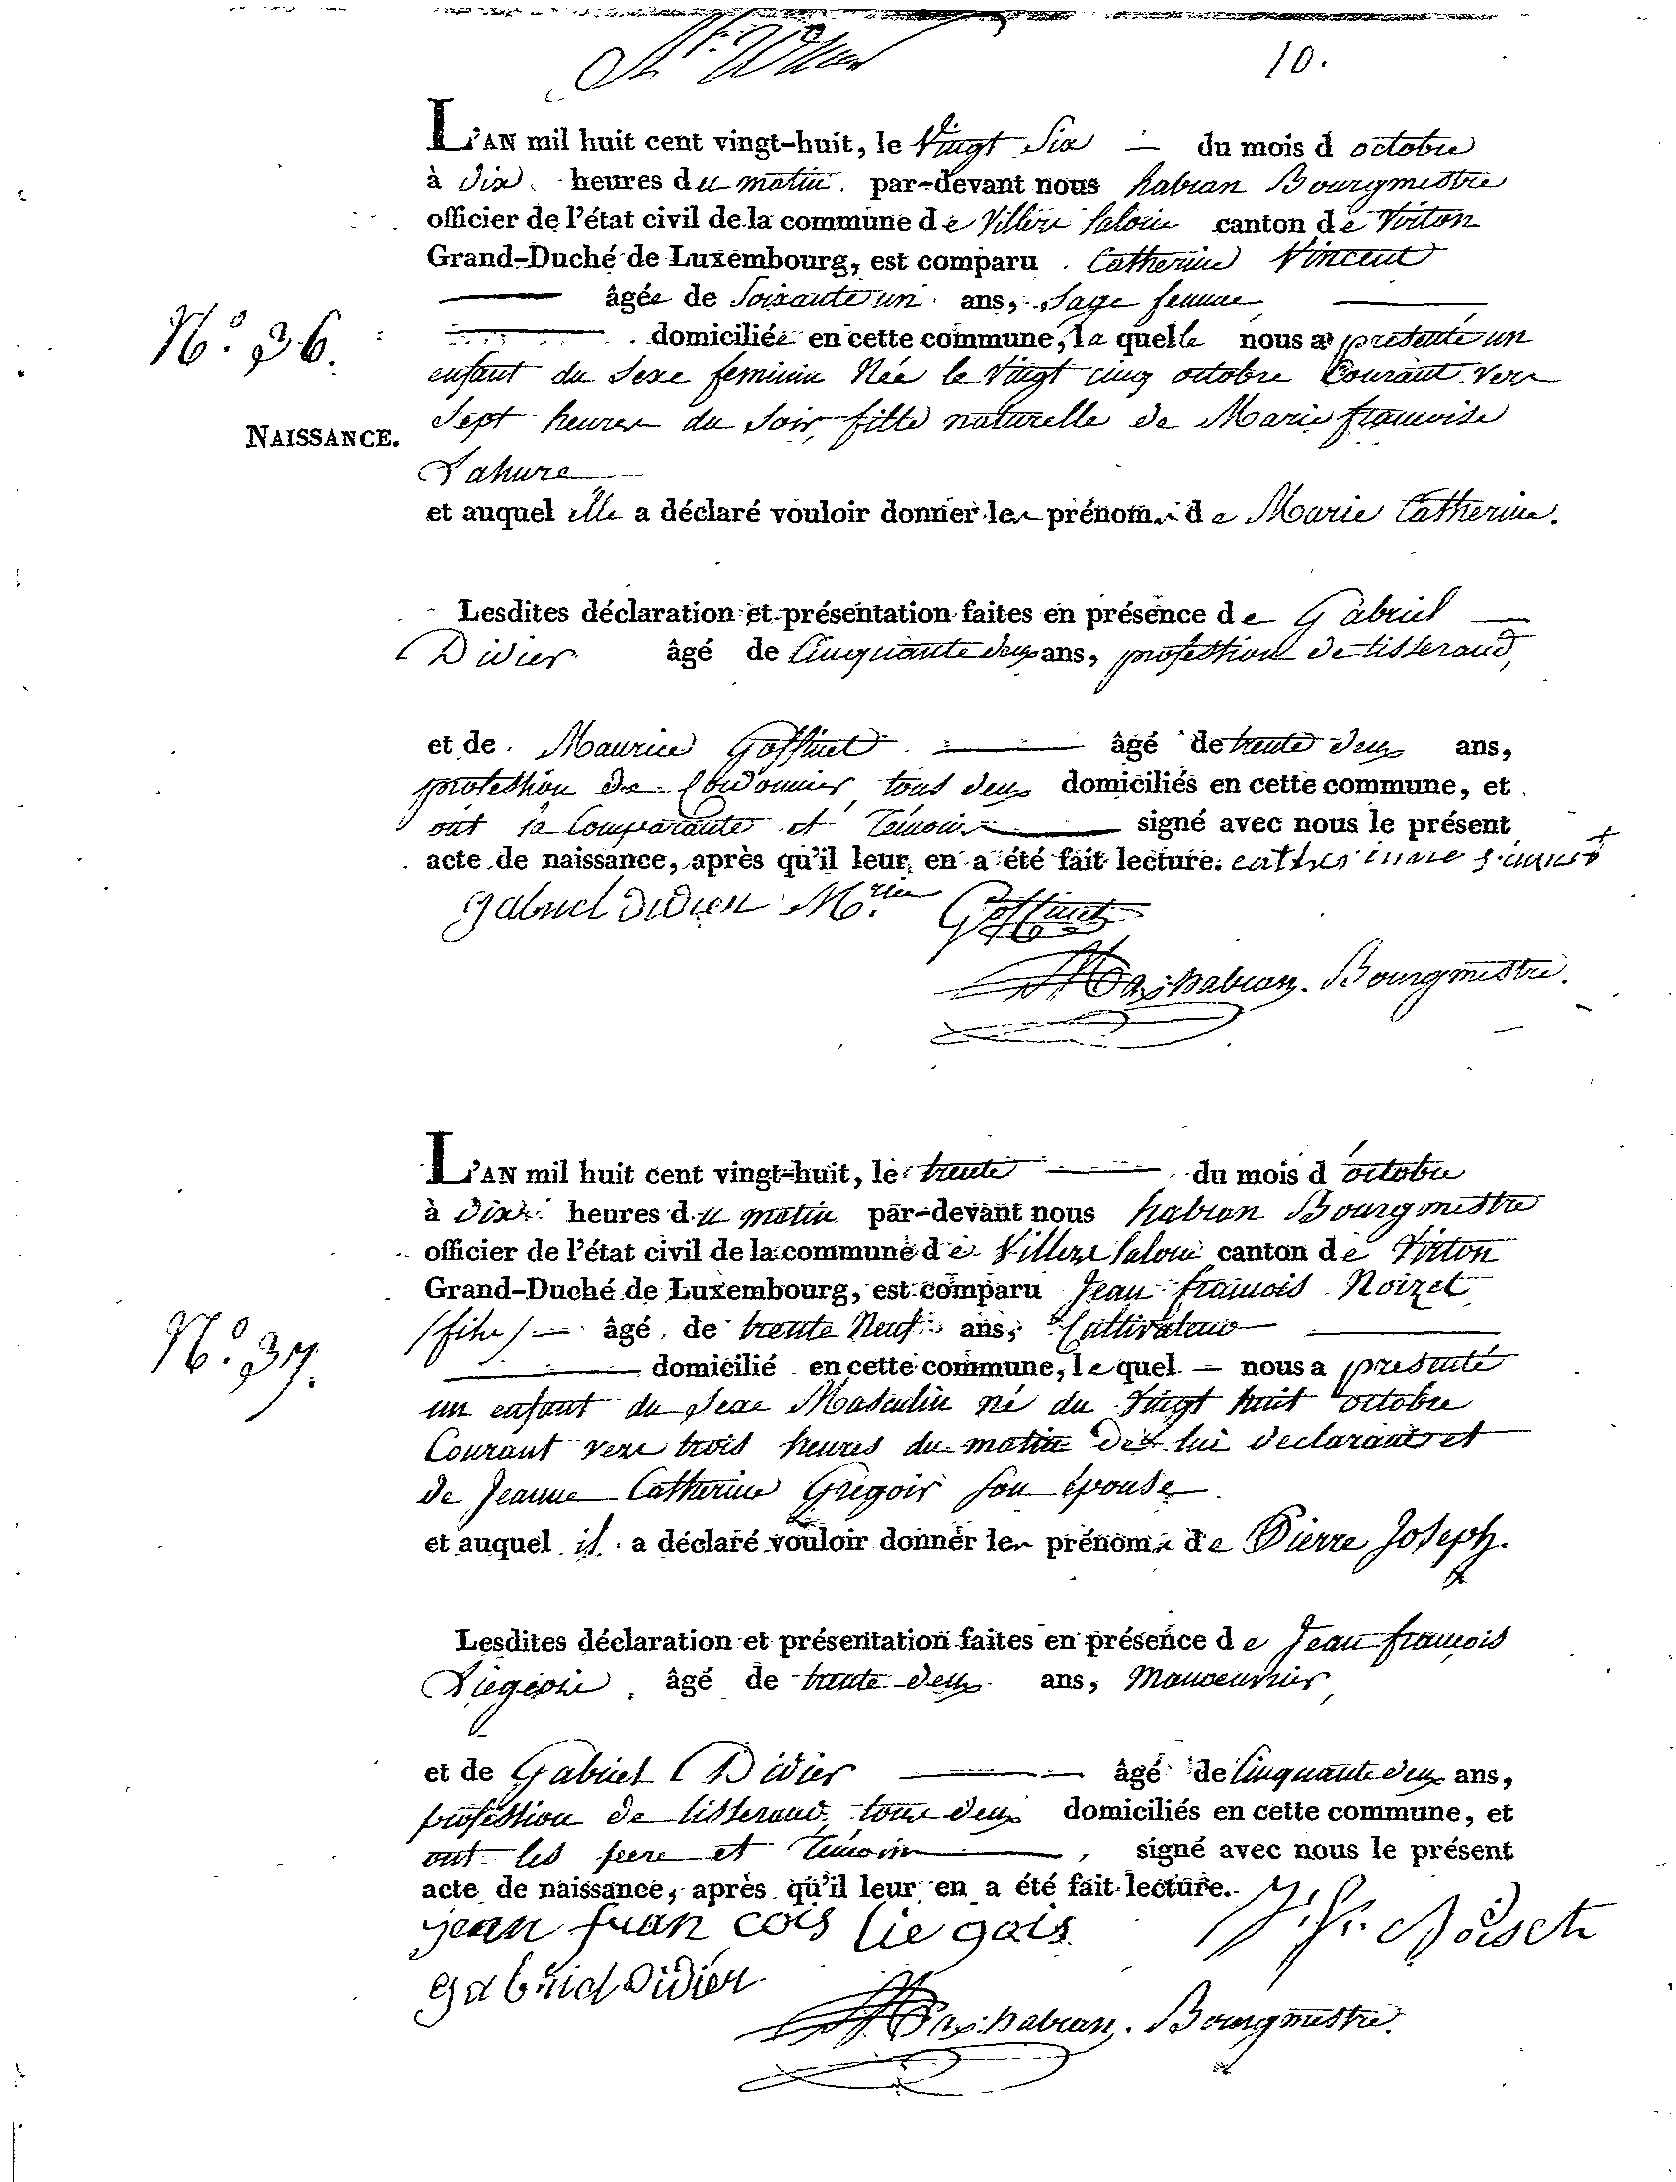 10.
L'AN mil huit cent vingt-huit, le Vingt Six du mois d octobre
à dix heures du matin par-devant nous habran Bourgmestre
officier de l'état civil de la commune de Villers Laloue canton de Virton
Grand-Duché de Luxembourg, est comparu Catherine Vincent
âgée de Soixante un ans, Sage femme
N.º 36.
domiciliée en cette commune, la quelle nous a presenté un
enfant du Sexe feminin Née le Vingt cinq octobre Courant vers
Sept heures du Soir, fille naturelle de Marie francoise
NAISSANCE.
Lahure
et auquel elle a déclaré vouloir donner les prénoms de Marie Catherine.
Lesdites déclaration et présentation faites en présence de Gabriel
Didier âgé de Cinquante deux ans, profession de tisserand,
et de Maurice Goffinet âgé de trente deux ans,
profession de Cordonnier, tous deux domiciliés en cette commune, et
ont la Comparante et Témoins signé avec nous le présent
acte de naissance, après qu'il leur en a été fait lecture.
gabriel didier M.rice Goffinet
habran. Bourgmestre.
L'AN mil huit cent vingt-huit, le trente du mois d octobre
à dix heures du matin par-devant nous habran Bourgmestre
officier de l'état civil de la commune de Villers Laloue canton de Virton
Grand-Duché de Luxembourg, est comparu Jean francois Noizet
(fils) âgé de trente Neuf ans, Cultivateur
N.º 37.
domicilié en cette commune, lequel nous a presenté
un enfant du Sexe Masculin né du Vingt huit octobre
Courant vers trois heures du matin de lui declarant et
de Jeanne Catherine Gregoir son épouse
et auquel il a déclaré vouloir donner les prénoms de Pierre Joseph.
Lesdites déclaration et présentation faites en présence de Jean françois
Liegeois, âgé de trente deux ans, Manoeuvrier,
et de Gabriel Didier âgé de Cinquante deux ans,
profession de tisserand, tous deux domiciliés en cette commune, et
ont les pere et Témoins signé avec nous le présent
acte de naissance, après qu'il leur en a été fait lecture.
jean fran cois lie gois J. fr. Noiset
gabriel didier
habran. Bourgmestre.